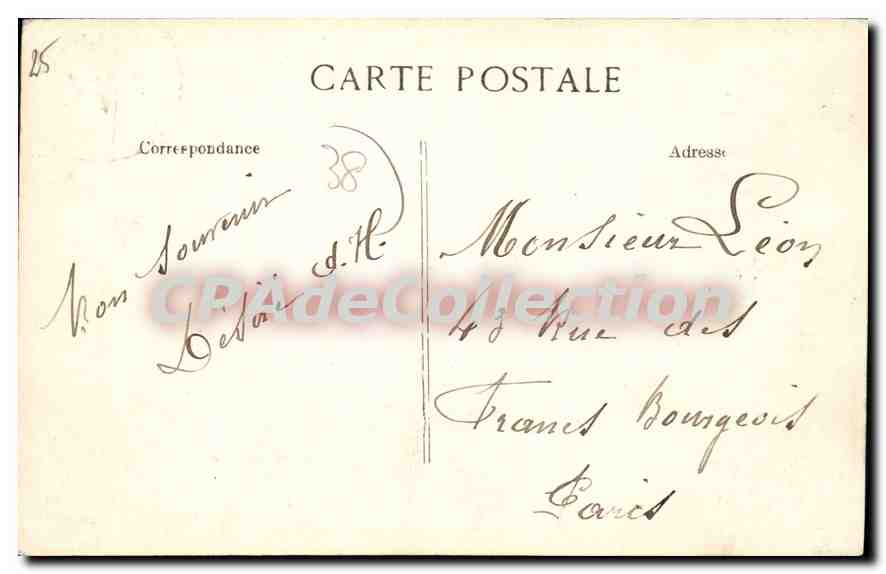 25
CARTE POSTALE
Correspondance
38
Bon souvenir
Désiré d.H.
Adresse
Monsieur Léon
43 Rue des
Francs Bourgeois
Paris
CPAdeCollection